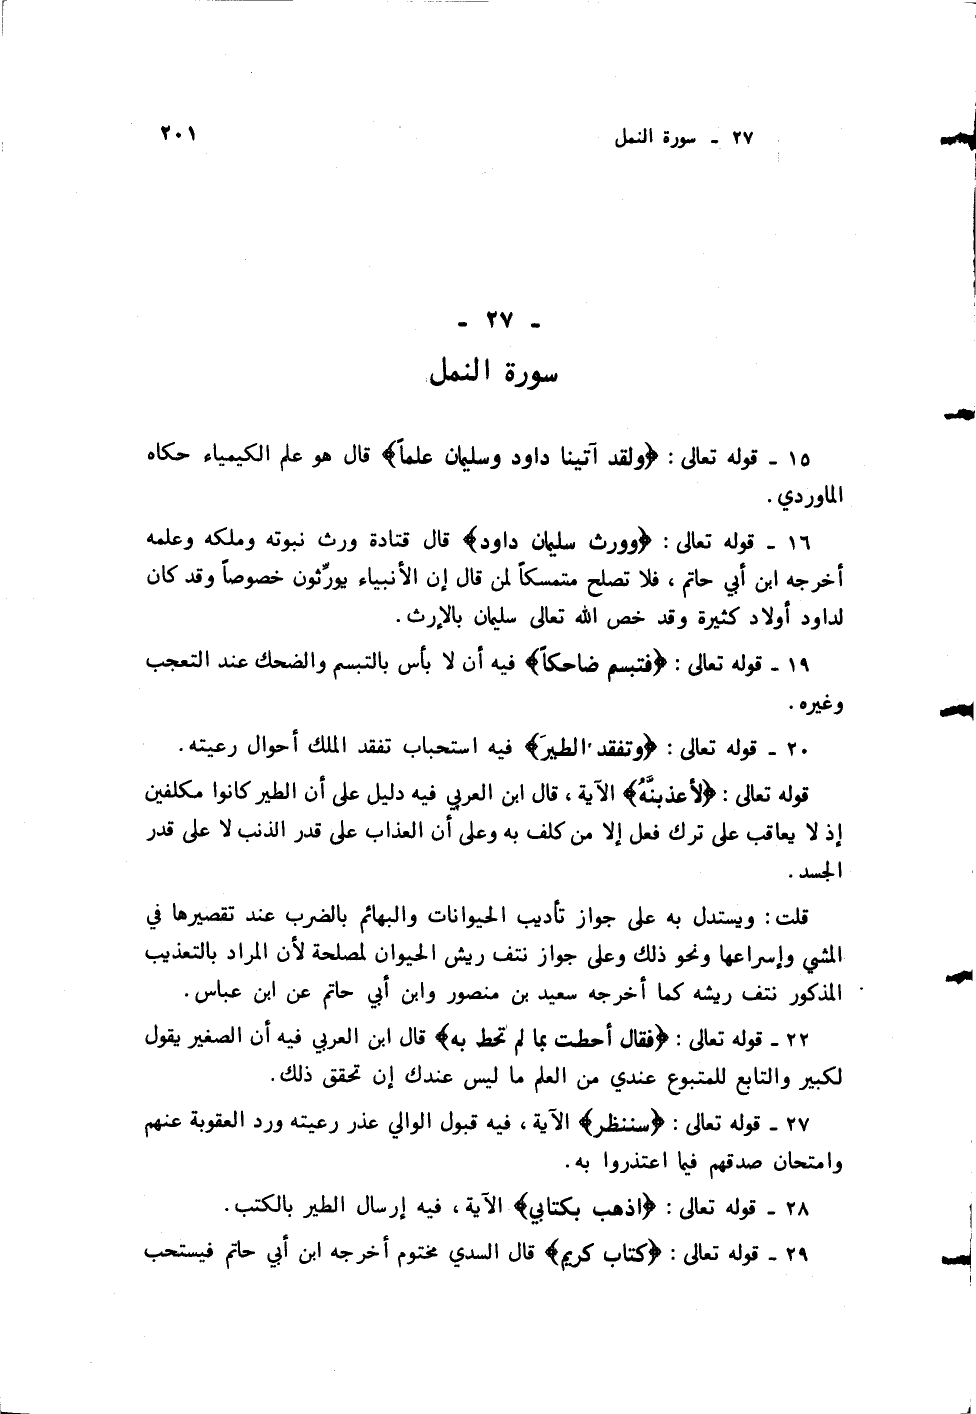 ٢٧ - سورة النمل ٢٠١
- ٢٧ -
سورة النمل
١٥ - قوله تعالى : ﴿ولقد آتينا داود وسليمان علماً﴾ قال هو علم الكيمياء حكاه
الماوردي .
١٦ - قوله تعالى : ﴿وورث سليمان داود﴾ قال قتادة ورث نبوته وملكه وعلمه
أخرجه ابن أبي حاتم ، فلا تصلح متمسكاً لمن قال إن الأنبياء يورِّثون خصوصاً وقد كان
لداود أولاد كثيرة وقد خص الله تعالى سليمان بالإرث .
١٩ - قوله تعالى : ﴿فتبسم ضاحكاً﴾ فيه أن لا بأس بالتبسم والضحك عند التعجب
وغيره .
٢٠ - قوله تعالى : ﴿وتفقد الطيرَ﴾ فيه استحباب تفقد الملك أحوال رعيته .
قوله تعالى : ﴿لأعذبنَّهُ﴾ الآية ، قال ابن العربي فيه دليل على أن الطير كانوا مكلفين
إذ لا يعاقب على ترك فعل إلا من كلف به وعلى أن العذاب على قدر الذنب لا على قدر
الجسد .
قلت : ويستدل به على جواز تأديب الحيوانات والبهائم بالضرب عند تقصيرها في
المشي وإسراعها ونحو ذلك وعلى جواز نتف ريش الحيوان لمصلحة لأن المراد بالتعذيب
المذكور نتف ريشه كما أخرجه سعيد بن منصور وابن أبي حاتم عن ابن عباس .
٢٢ - قوله تعالى : ﴿فقال أحطت بما لم تحط به﴾ قال ابن العربي فيه أن الصغير يقول
لكبير والتابع للمتبوع عندي من العلم ما ليس عندك إن تحقق ذلك .
٢٧ - قوله تعالى : ﴿سننظر﴾ الآية ، فيه قبول الوالي عذر رعيته ورد العقوبة عنهم
وامتحان صدقهم فيما اعتذروا به .
٢٨ - قوله تعالى : ﴿اذهب بكتابي﴾ الآية ، فيه إرسال الطير بالكتب .
٢٩ - قوله تعالى : ﴿كتاب كريم﴾ قال السدي مختوم أخرجه ابن أبي حاتم فيستحب